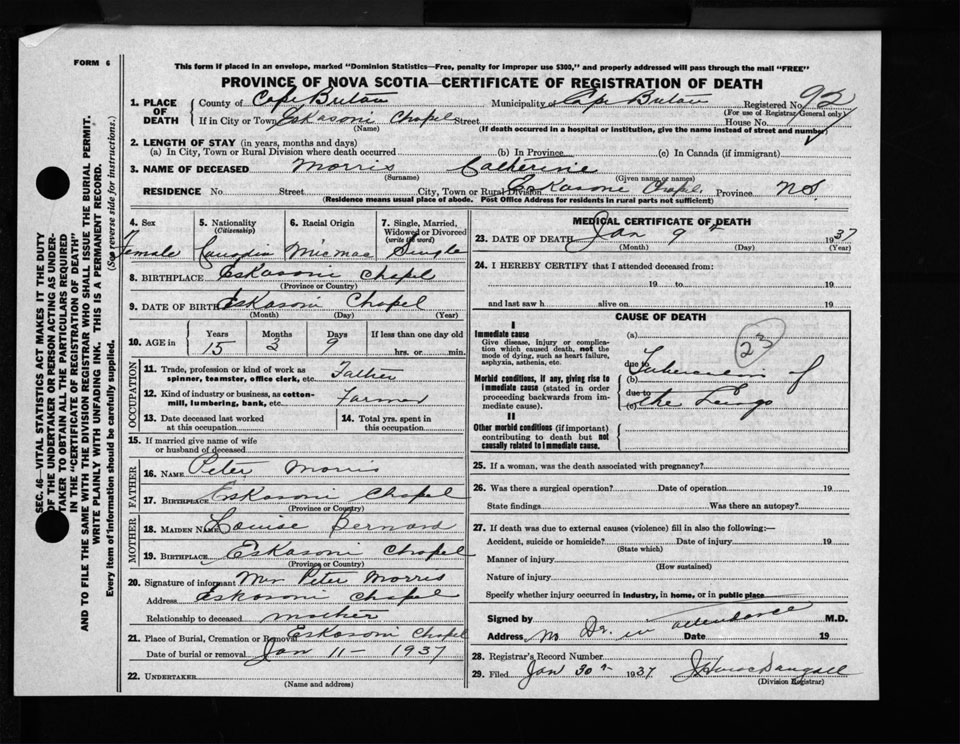 FORM 6
This form if placed in an envelope, marked "Dominion Statistics—Free, penalty for improper use $300," and properly addressed will pass through the mail "FREE"
PROVINCE OF NOVA SCOTIA—CERTIFICATE OF REGISTRATION OF DEATH
1. PLACE OF DEATH
County of Cape Breton Municipality of Cape Breton Registered No. 92
(For use of Registrar General only)
If in City or Town Eskasoni Chapel Street House No.
(Name) (If death occurred in a hospital or institution, give the name instead of street and number)
2. LENGTH OF STAY (in years, months and days)
(a) In City, Town or Rural Division where death occurred (b) In Province (c) In Canada (if immigrant)
3. NAME OF DECEASED Morris Catherine
(Surname) (Given name or names)
RESIDENCE No. Street City, Town or Rural Division Eskasoni Chapel Province NS
(Residence means usual place of abode. Post Office Address for residents in rural parts not sufficient)
4. Sex Female
5. Nationality (Citizenship) Canadin
6. Racial Origin Micmac
7. Single, Married, Widowed or Divorced (write the word) Single
8. BIRTHPLACE Eskasoni Chapel
(Province or Country)
9. DATE OF BIRTH Eskasoni Chapel
(Month) (Day) (Year)
10. AGE in Years 15 Months 3 Days 9 If less than one day old hrs. or min.
OCCUPATION
11. Trade, profession or kind of work as spinner, teamster, office clerk, etc. Father
12. Kind of industry or business, as cotton-mill, lumbering, bank, etc. Farmer
13. Date deceased last worked at this occupation
14. Total yrs. spent in this occupation
15. If married give name of wife or husband of deceased
FATHER
16. NAME Peter Morris
17. BIRTHPLACE Eskasoni Chapel
(Province or Country)
MOTHER
18. MAIDEN NAME Louise Bernard
19. BIRTHPLACE Eskasoni Chapel
(Province or Country)
20. Signature of informant Mrs Peter Morris
Address Eskasoni Chapel
Relationship to deceased mother
21. Place of Burial, Cremation or Removal Eskasoni Chapel
Date of burial or removal Jan 11 - 1937
22. UNDERTAKER
(Name and address)
MEDICAL CERTIFICATE OF DEATH
23. DATE OF DEATH Jan 9th 1937
(Month) (Day) (Year)
24. I HEREBY CERTIFY that I attended deceased from:
19 to 19
and last saw h alive on 19
CAUSE OF DEATH
I
Immediate cause
Give disease, injury or complication which caused death, not the mode of dying, such as heart failure, asphyxia, asthenia, etc.
Morbid conditions, if any, giving rise to immediate cause (stated in order proceeding backwards from immediate cause).
II
Other morbid conditions (if important) contributing to death but not causally related to immediate cause.
(a)
due to
(b) Tuberculosis of
due to
(c) the Lungs
25. If a woman, was the death associated with pregnancy?
26. Was there a surgical operation? Date of operation 19
State findings Was there an autopsy?
27. If death was due to external causes (violence) fill in also the following:—
Accident, suicide or homicide? Date of injury 19
(State which)
Manner of injury
(How sustained)
Nature of injury
Specify whether injury occurred in industry, in home, or in public place
Signed by M.D.
No Dr. in attendance
Address Date 19
28. Registrar's Record Number
29. Filed Jan 30 1937
(Division Registrar)
SEC. 46—VITAL STATISTICS ACT MAKES IT THE DUTY
OF THE UNDERTAKER OR PERSON ACTING AS UNDER-
TAKER TO OBTAIN ALL THE PARTICULARS REQUIRED
IN THE "CERTIFICATE OF REGISTRATION OF DEATH"
AND TO FILE THE SAME WITH THE DIVISION REGISTRAR WHO SHALL ISSUE THE BURIAL PERMIT.
WRITE PLAINLY WITH UNFADING INK. THIS IS A PERMANENT RECORD.
Every item of information should be carefully supplied. (See reverse side for instructions.)